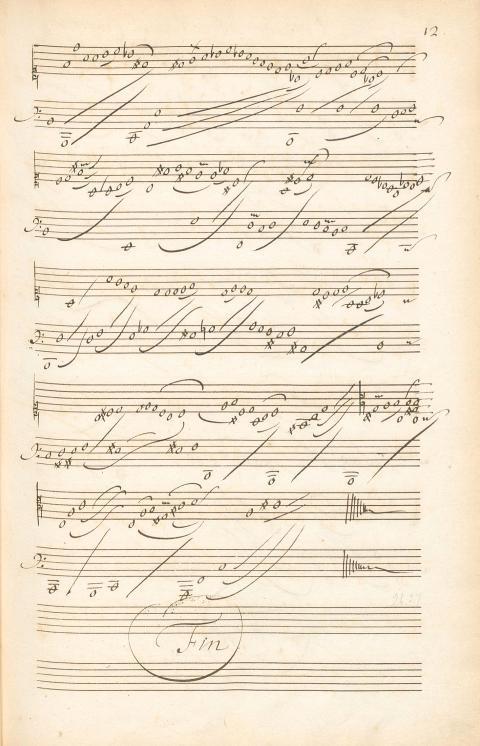 12
Fin